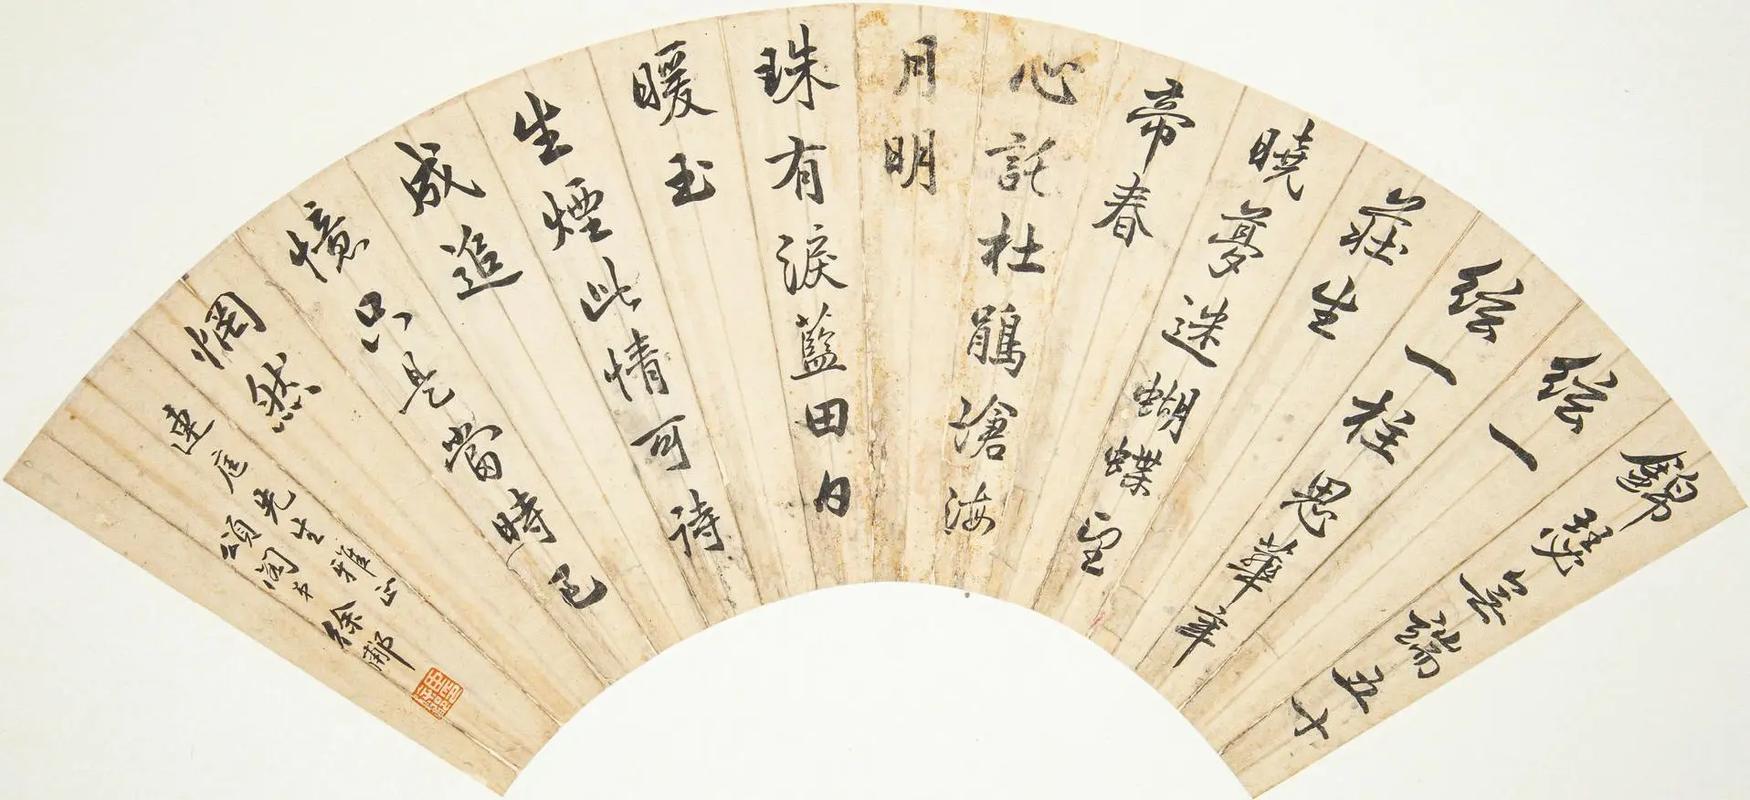 錦瑟無端五十
絃一
絃一柱思華年
莊生
曉夢迷蝴蝶望
帝春
心託杜鵑滄海
月明
珠有淚藍田日
暖玉
生煙此情可待
成追
憶只是當時已
惘然
蓮庭先生雅正
頌閣弟徐郙